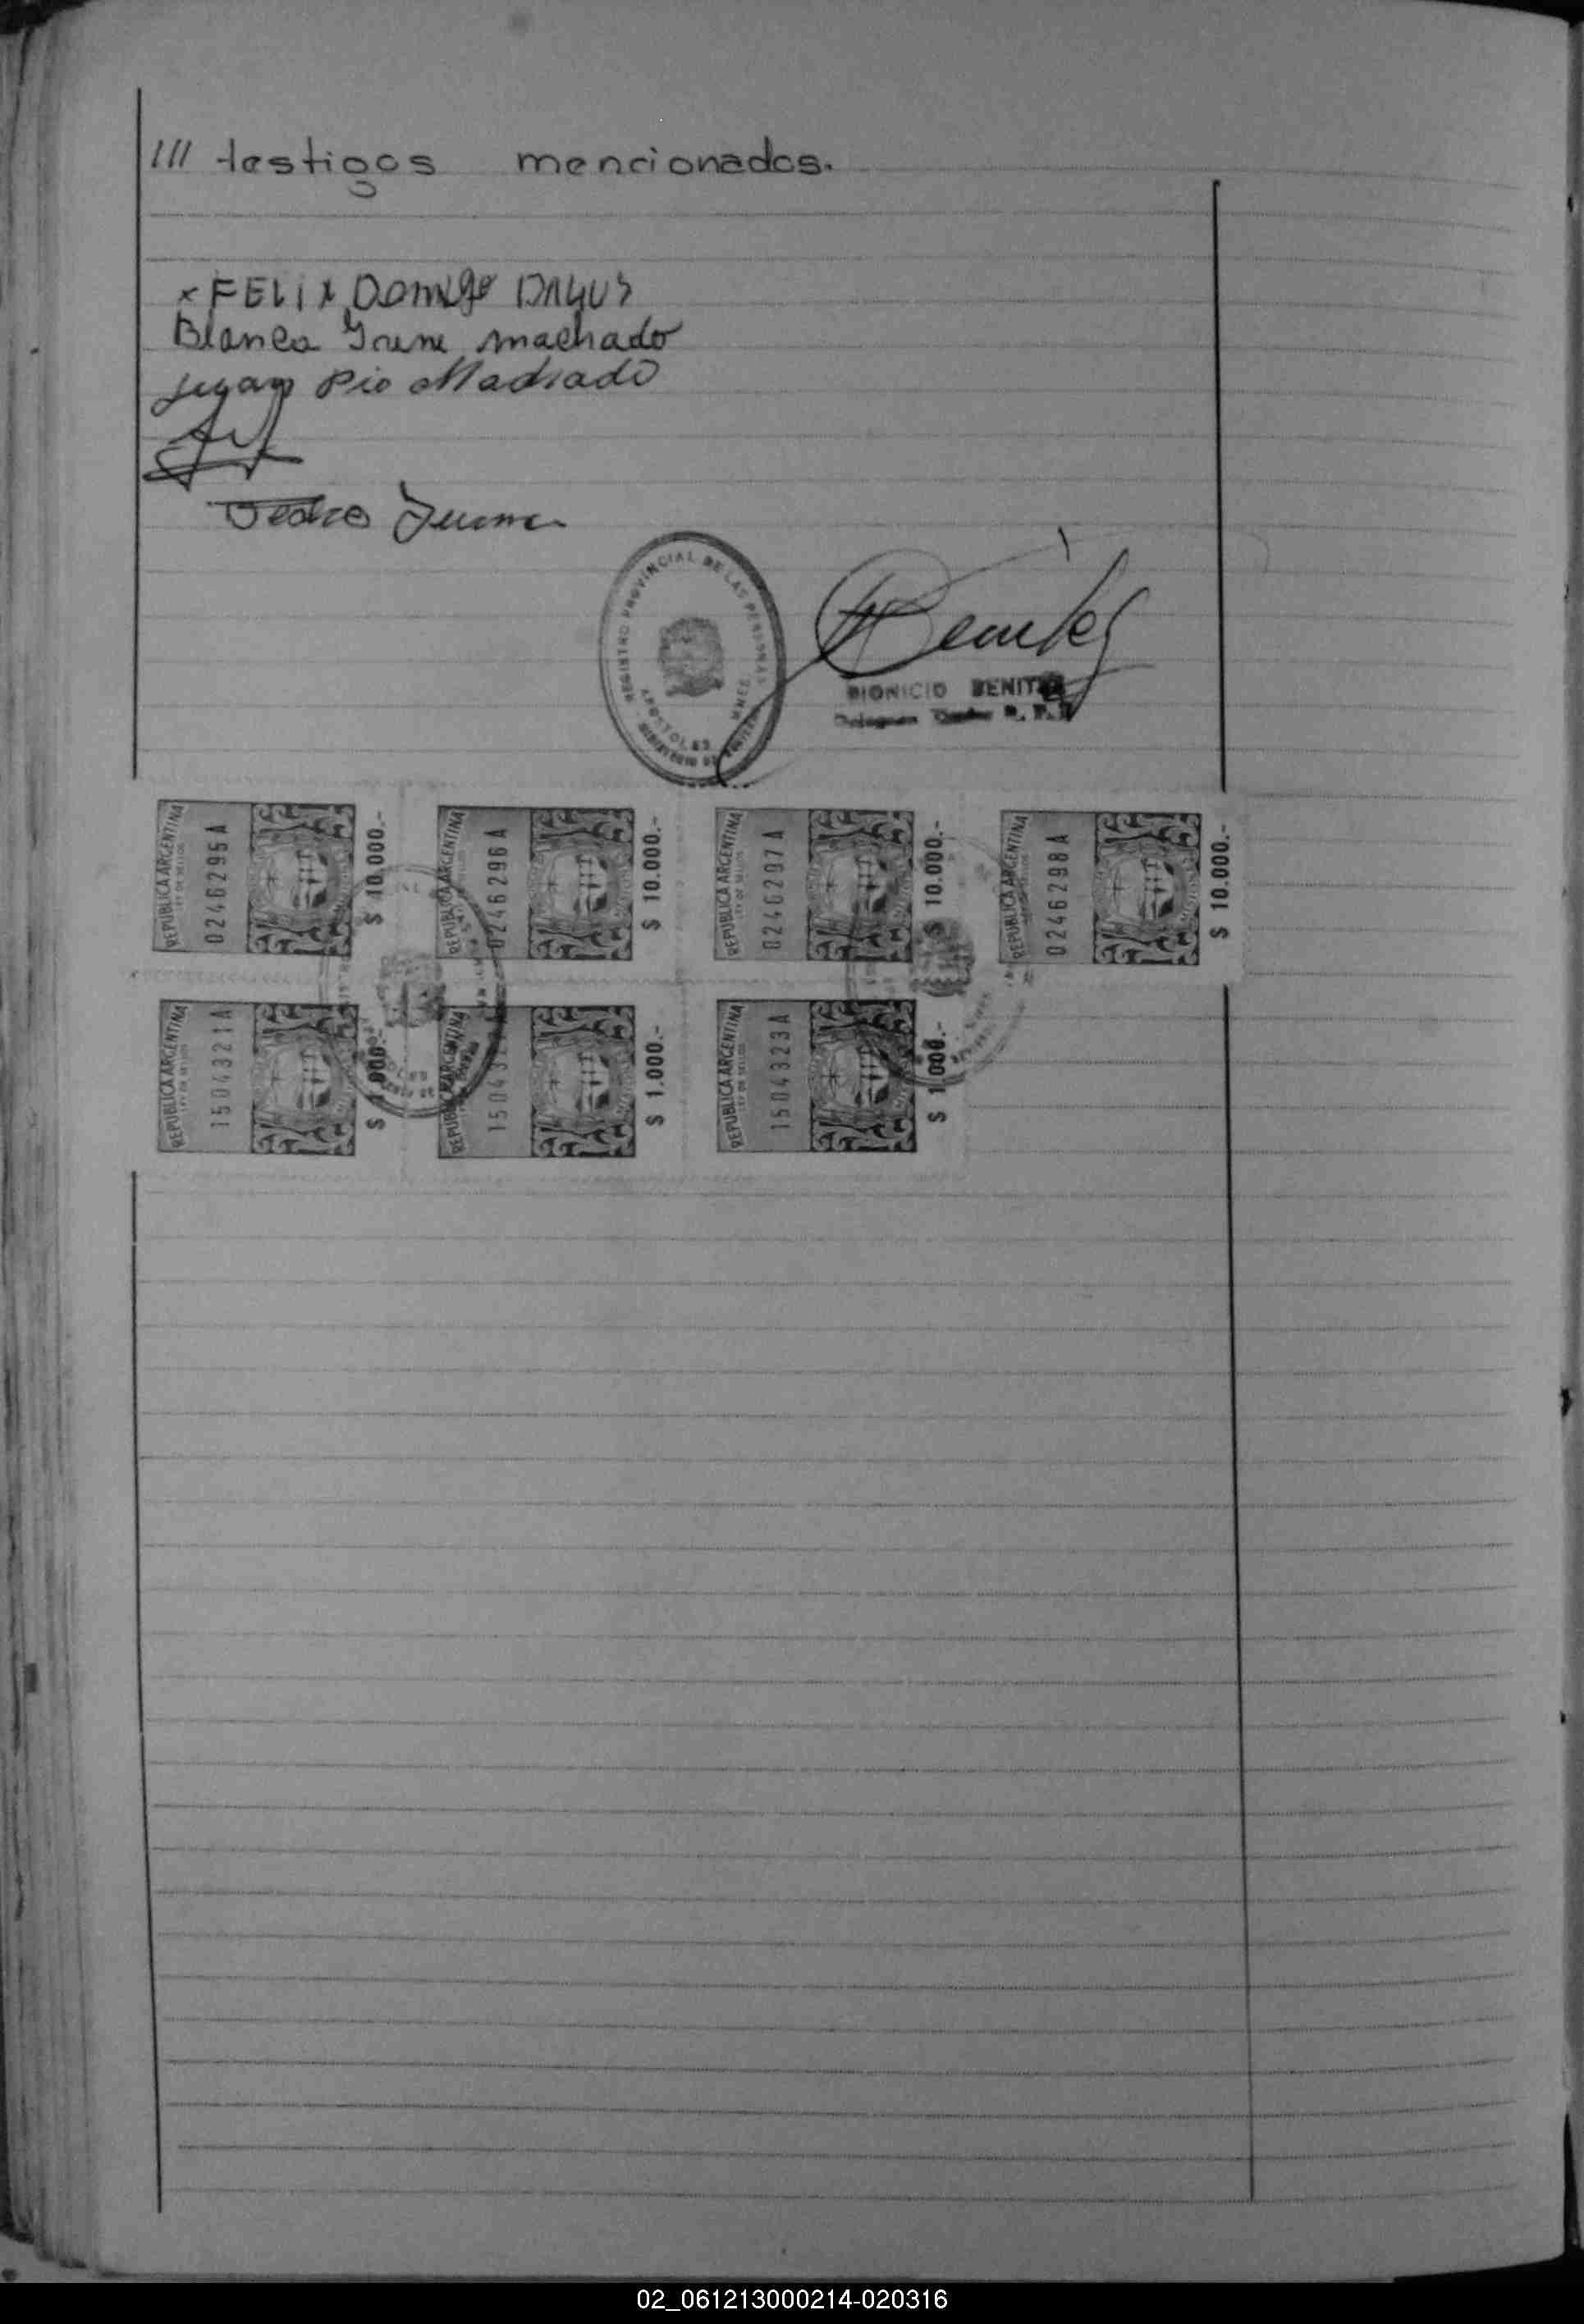 /// testigos mencionados.
x FELIX DOMIGO DAHUS
Blanca Irene machado
Pio Machado
Pedro
REGISTRO PROVINCIAL DE LAS PERSONAS
APOSTOLES MNES
MINISTERIO DE
Benitez
DIONICIO BENITEZ
REPUBLICA ARGENTINA
LEY DE SELLOS
0246295A
$ 10.000.-
REPUBLICA ARGENTINA
0246296A
$ 10.000.-
REPUBLICA ARGENTINA
LEY DE SELLOS
0246297A
$ 10.000.-
REPUBLICA ARGENTINA
0246298A
$ 10.000.-
REPUBLICA ARGENTINA
LEY DE SELLOS
1504321A
$ 1.000.-
REPUBLICA ARGENTINA
$ 1.000.-
REPUBLICA ARGENTINA
LEY DE SELLOS
1504323A
$ 1.000.-
02_061213000214-020316